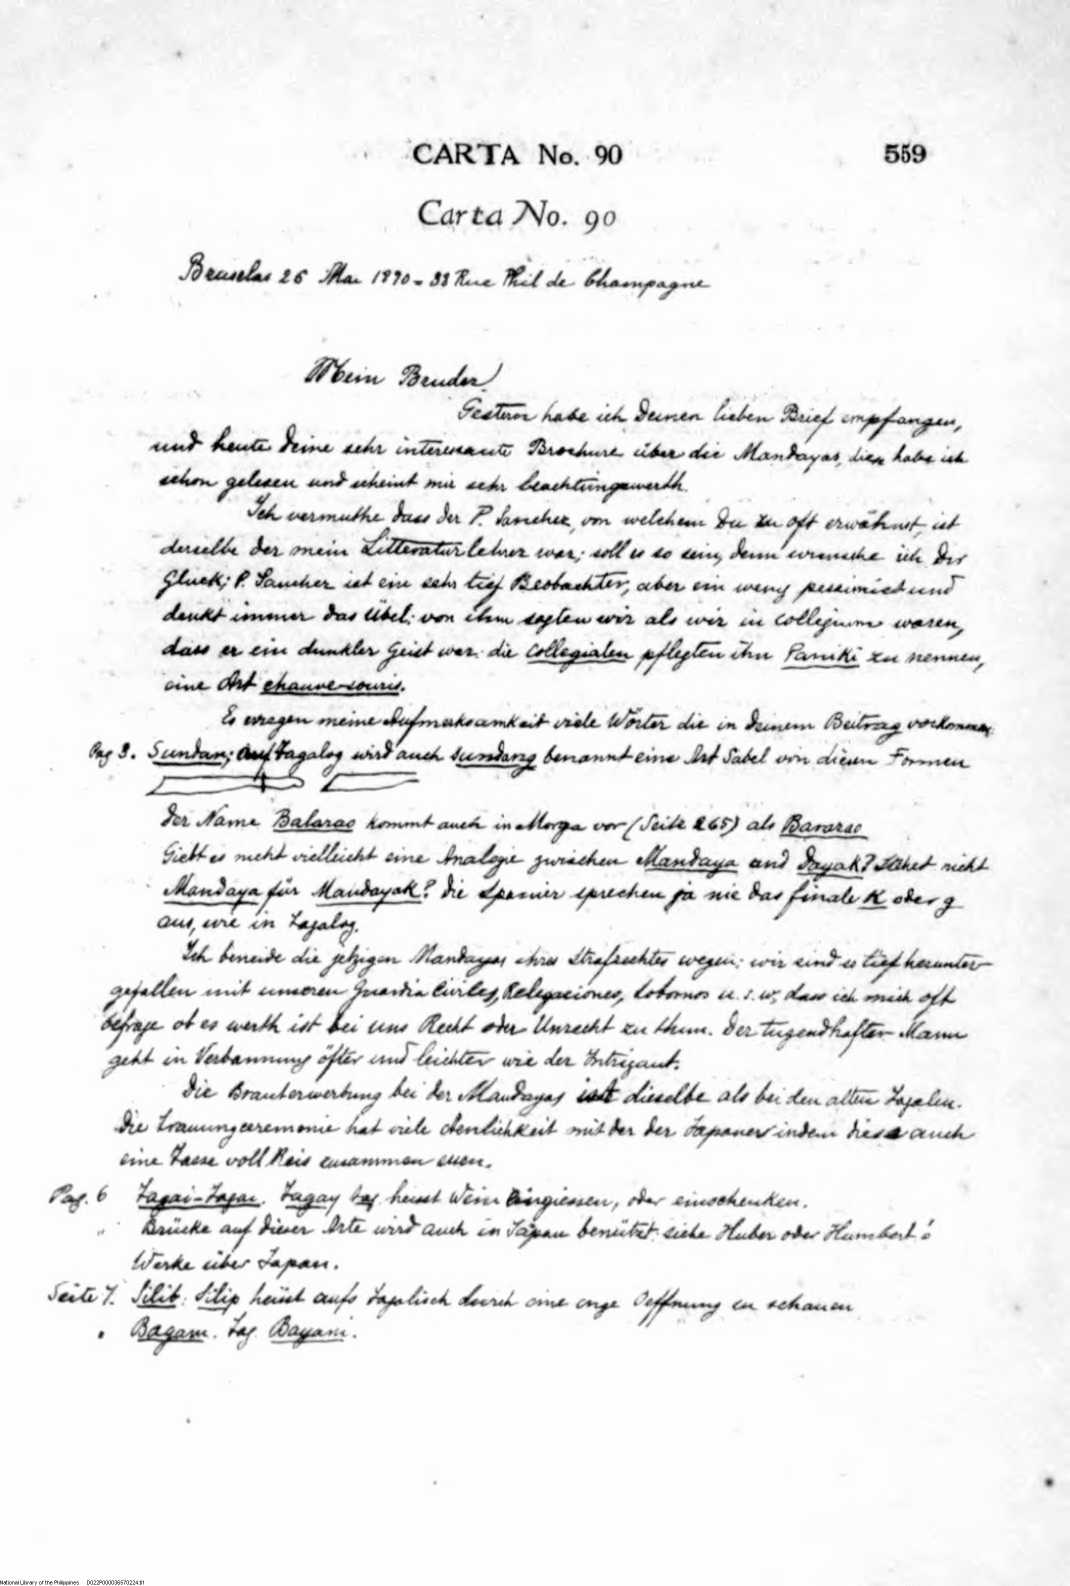 CARTA No. 90
559
Carta No. 90
Bruselas 26 Mai 1890 = 38 Rue Phil de Champagne
Mein Bruder,
Gestern habe ich Deinen lieben Brief empfangen,
und heute Deine sehr interessante Brochure über die Mandayas, diese habe ich
schon gelesen und scheint mir sehr beachtungswerth.
Ich vermuthe dass der P. Sanchez, von welchem Du zu oft erwähnst, ist
derselbe der mein Litteraturlehrer war; soll es so sein, denn wünsche ich Dir
Gluck; P. Sanchez ist ein sehr tief Beobachter, aber ein wenig pessimist und
denkt immer das Übel: von ihm sagten wir als wir in collegium waren,
dass er ein dunkler Geist war: die Collegialen pflegten ihn Paniki zu nennen,
eine Art chauve-souris.
Es erregen meine Aufmerksamkeit viele Wörter die in Deinem Beitrag vorkommen
Pag 3. Sundan; auf Tagalog wird auch sundang benannt eine Art Sabel von diesen Formen
Der Name Balarao kommt auch in Morga vor (Seite 265) als Bararao
Giebt es nicht vielleicht eine Analogie zwischen Mandaya und Dayak? Stehet nicht
Mandaya für Mandayak? Die Spanier sprechen ja nie das finale K oder g
aus, wie in Tagalog.
Ich beneide die jetzigen Mandayas ihres Strafrechtes wegen; wir sind so tief herunter-
gefallen mit unseren Guardia Civiles, Relegaciones, Sobornos u. s. w, dass ich mich oft
befrage ob es werth ist bei uns Recht oder Unrecht zu thun. Der tugendhafter Mann
geht in Verbannung öfter und leichter wie der Intrigant.
Die Brauterwerbung bei der Mandayas ist dieselbe als bei den alten Tagalen.
Die Trauungceremonie hat viele Aenlichkeit mit der der Japaner indem diese auch
eine Tasse voll Reis zusammen essen.
Pag. 6 Tagai-Tagai. Tagay tag. heisst Wein eingiessen, oder einschenken.
„ Brücke auf dieser Arte wird auch in Japan benützt: siehe Huber oder Humbert's
Werke über Japan.
Seite 7. Silib: Silip heisst aufs Tagalisch durch eine enge Oeffnung zu schauen
" Bagani. Tag. Bayani.
National Library of the Philippines